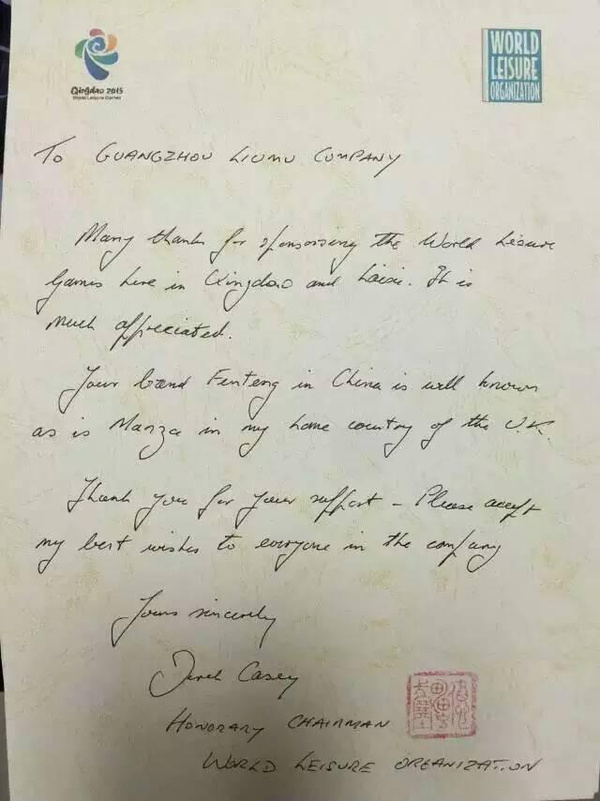 Qingdao 2015
World Leisure Games
WORLD
LEISURE
ORGANIZATION
To GUANGZHOU LIUMU COMPANY
Many thanks for sponsorising the World Leisure
Games here in Qingdao and Laixi. It is
much appreciated.
Your brand Fenteng in China is well known
as is Manza in my home country of the U.K.
Thank you for your support - Please accept
my best wishes to everyone in the company
Yours sincerely
Derek Casey
HONORARY CHAIRMAN
WORLD LEISURE ORGANIZATION